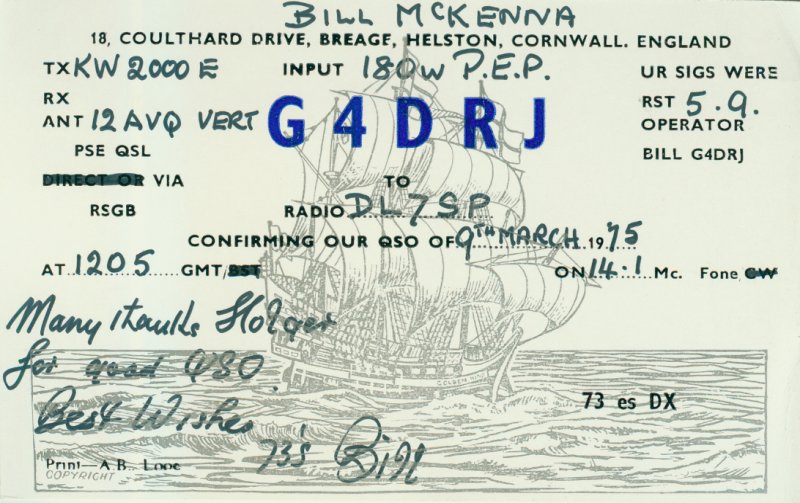 BILL McKENNA
18, COULTHARD DRIVE, BREAGE, HELSTON, CORNWALL. ENGLAND
TX KW 2000 E INPUT 180W P.E.P. UR SIGS WERE
RX RST 5.9.
ANT 12 AVQ VERT G4DRJ OPERATOR
PSE QSL BILL G4DRJ
DIRECT OR VIA TO
RSGB RADIO DL7SP
CONFIRMING OUR QSO OF 9TH MARCH 1975
AT 1205 GMT/BST ON 14.1 Mc. Fone CW
Many thanks Holger
for good QSO
GOLDEN HIND
73 es DX
Best Wishes
73's Bill
Print—A.B. Looe
COPYRIGHT